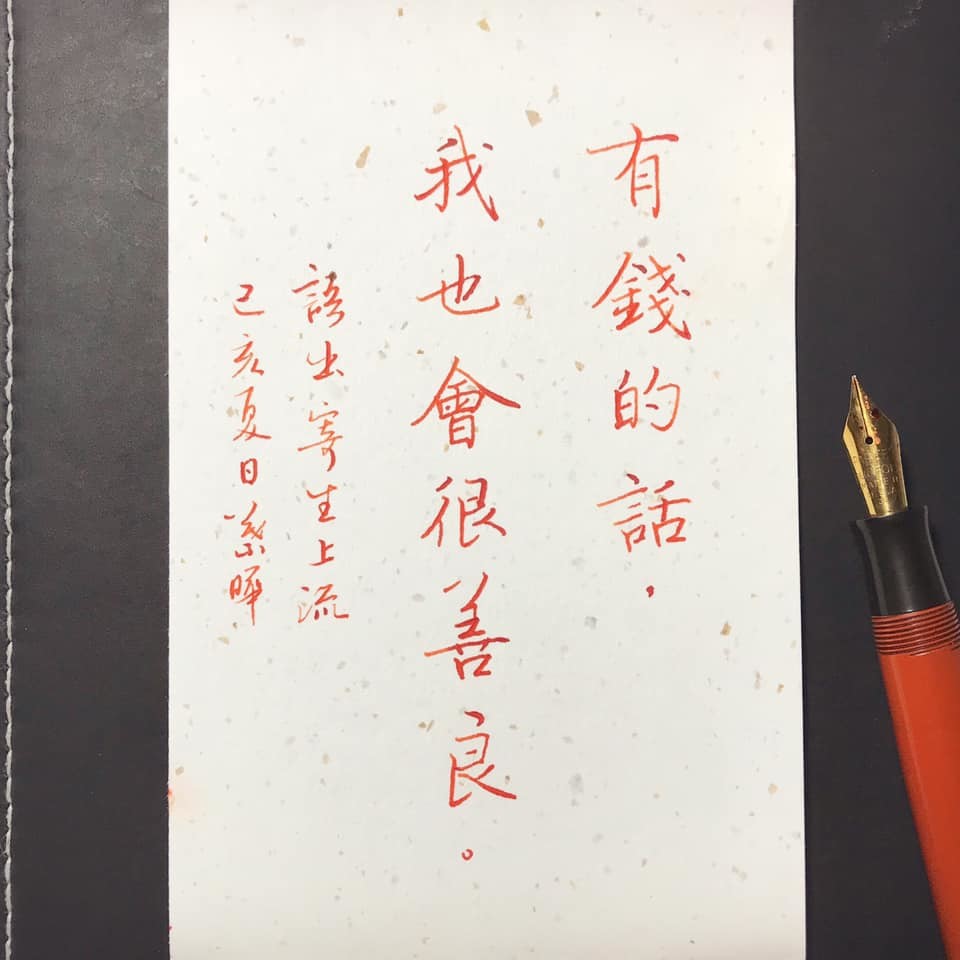 有錢的話，
我也會很善良。
語出寄生上流
己亥夏日葉曄